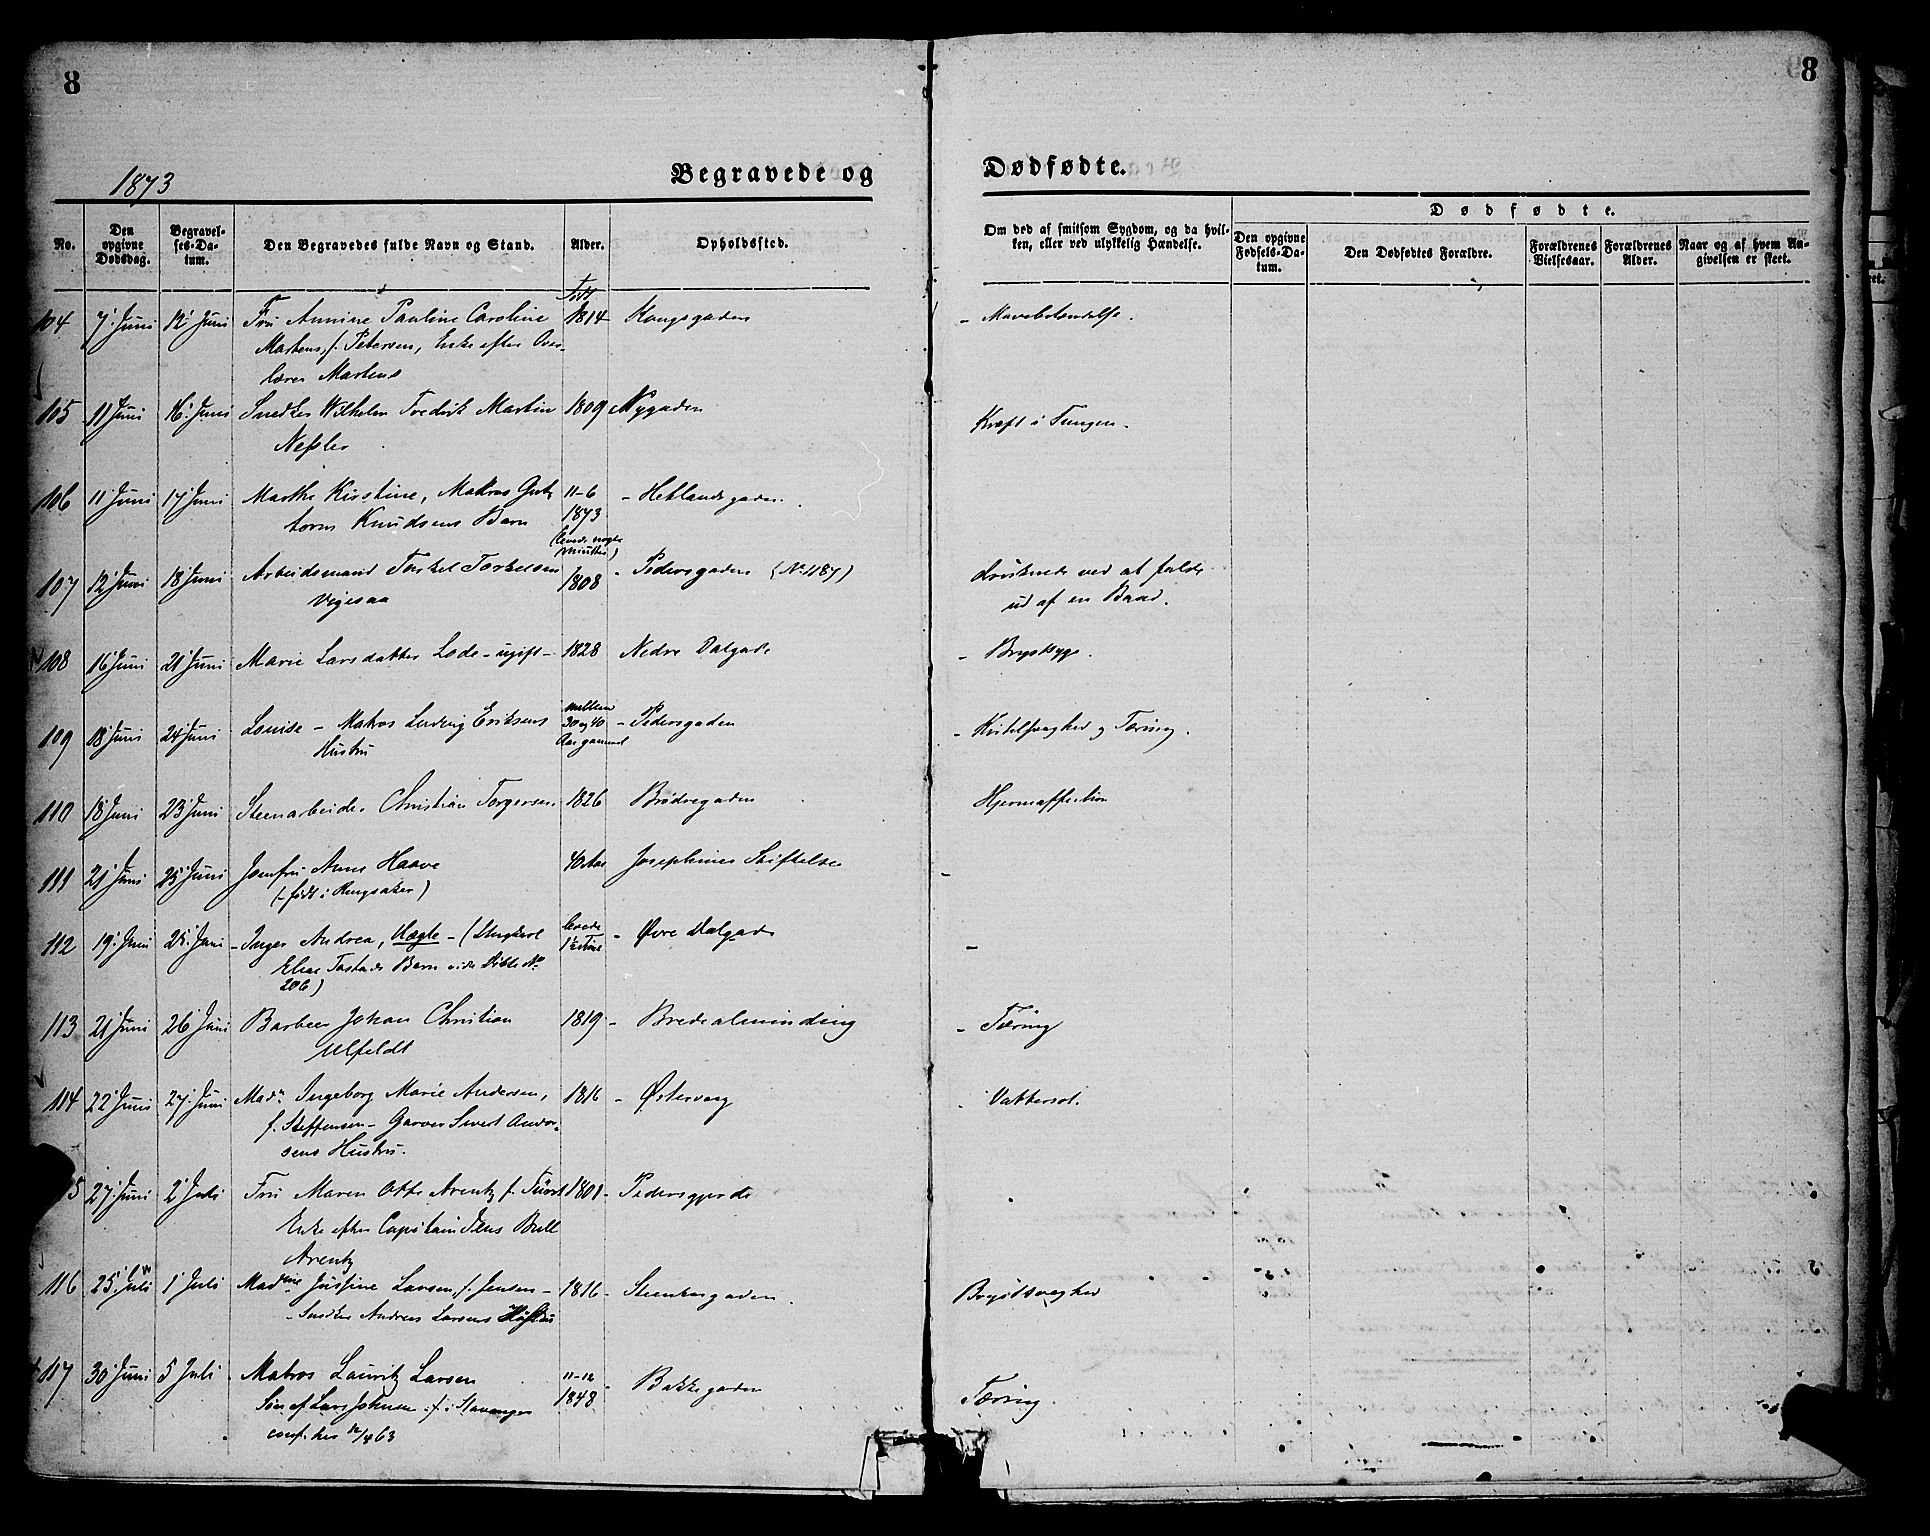 8
8
1873
Begravede og
Dødfødte.
No.
Den opgivne Dødsdag.
Begravelses-Datum.
Den Begravedes fulde Navn og Stand.
Alder.
Opholdssted.
Om død af smitsom Sygdom, og da hvilken, eller ved ulykkelig Hændelse.
Dødfødte.
Den opgivne Fødsels-Datum.
Den Dødfødtes Forældre.
Forældrenes Vielsesaar.
Forældrenes Alder.
Naar og af hvem Angivelsen er skeet.
104 7' Juni 12' Juni Fru Annine Pauline Caroline født 1814 Kongsgaden - Mavebetændelse.
Martens, f. Petersen, Enke efter Over-
lærer Martens
105 11' Juni 16' Juni Snedker Wilhelm Fredrik Martin 1809 Nygaden Kræft i Tungen.
Nessler
106 11' Juni 17' Juni Marthe Kirstine, Matros Gut- 11-6 1873 - Hetlandsgaden.
torm Knudsens Barn (levede nogle Minutter)
107 12' Juni 18' Juni Arbeidsmand Torkel Torkelsen 1808 - Pedersgaden (No 1187) druknede ved at falde
Vigesaa ud af en Baad.
108 16' Juni 21' Juni Marie Larsdatter Lode - ugift - 1828 Nedre Dalgade - Brystsyge.
109 18' Juni 24' Juni Louise - Matros Ludvig Eriksens mellem 30 og 40 Aar gammel - Pedersgaden - Kirtelsvaghed og Tæring.
Hustru
110 18' Juni 23' Juni Steenarbeider Christian Torgersen 1826 Brødregaden Hjerneaffection
111 21' Juni 25' Juni Jomfru Anne Haave 40 Aar Josephines Stiftelse -
(- født i Ringsaker)
112 19' Juni 25' Juni - Inger Andrea, Uægte - ( levede 1½ Time - Øvre Dalgade -
Elias Tastads Barn vide No
206)
113 21' Juni 26' Juni Barbeer Johan Christian 1819 - Bredealminding - Tæring
Ulfeldt
114 22' Juni 27' Juni Madm Ingeborg Marie Andersen, 1816 - Østervaag - Vattersot.
f. Steffensen - Garver Sivert Ander-
sens Hustru.
5 27' Juni 2' Juli Fru Maren Otte Arentz f. Fürst 1801 - Pedersgjerde
Enke efter Capitain Jens Bull
Arentz
116 25' Juli 1' Juli Madme Justine Larsen, f. Jensen - 1816 - Steenbergaden. Brystsvaghed
- Snedker Andreas Larsens Hustru
117 30' Juni 5' Juli Matros Lauritz Larsen 11-12 1848 - Bakkegaden Tæring.
Søn af Lars Johnsen f. i Stavanger
conf. her 12/4 63